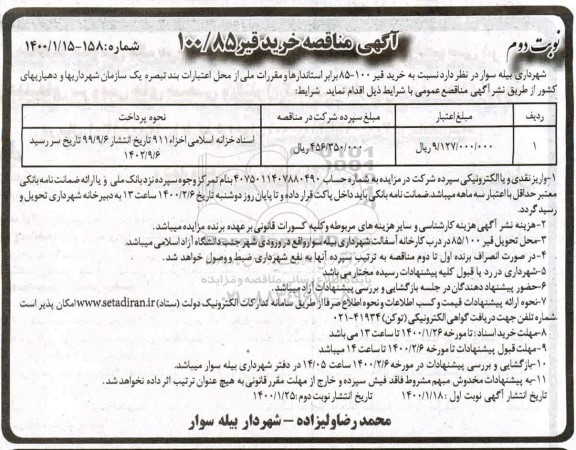 نوبت دوم
آگهی مناقصه خرید قیر ۱۰۰/۸۵
شماره: ۱۵۸-۱۴۰۰/۱/۱۵
شهرداری بیله سوار در نظر دارد نسبت به خرید قیر ۱۰۰-۸۵ برابر استاندارها و مقررات ملی از محل اعتبارات بند تبصره یک سازمان شهرداریها و دهیاریهای
کشور از طریق نشر آگهی مناقصع عمومی با شرایط ذیل اقدام نماید شرایط:
ردیف	مبلغ اعتبار	مبلغ سپرده شرکت در مناقصه	نحوه پرداخت
۱	۹/۱۲۷/۰۰۰/۰۰۰ ریال	۴۵۶/۳۵۰/۰۰۰ ریال	اسناد خزانه اسلامی اخزاء ۹۱۱ تاریخ انتشار ۹۹/۹/۶ تاریخ سر رسید
۱۴۰۲/۹/۶
۱-واریز نقدی و یا الکترونیکی سپرده شرکت در مزایده به شماره حساب ۴۰۷۵۰۱۱۴۰۷۸۸۰۴۹۰ بنام تمرکز وجوه سپرده نزد بانک ملی و یا ارائه ضمانت نامه بانکی
معتبر حداقل با اعتبار سه ماهه میباشد.ضمانت نامه بانکی باید داخل پاکت قرار داده و تا پایان روز دوشنبه تاریخ ۱۴۰۰/۲/۶ تا ساعت ۱۳ به دبیرخانه شهرداری تحویل و
رسید گردد.
۲-هزینه نشر آگهی هزینه کارشناسی و سایر هزینه های مربوطه وکلیه کسورات قانونی بر عهده برنده مزایده میباشد.
۳-محل تحویل قیر ۸۵/۱۰۰ در درب کارخانه آسفالت شهرداری بیله سوار واقع در ورودی شهر جنب دانشگاه آزاد اسلامی میباشد.
۴-در صورت انصراف برنده اول تا دوم مناقصه به ترتیب سپرده آنها به نفع شهرداری ضبط و وصول خواهد شد.
۵-شهرداری در رد یا قبول کلیه پیشنهادات رسیده مختار می باشد
۶-حضور پیشنهاد دهندگان در جلسه بازگشایی و بررسی پیشنهادات آزاد میباشد.
۷-نحوه ارائه پیشنهادات قیمت و کسب اطلاعات و نحوه اطلاع صرفا از طریق سامانه تدارکات الکترونیک دولت (ستاد) www.setadiran.ir امکان پذیر است
شماره تلفن جهت دریافت گواهی الکترونیکی (توکن) ۴۱۹۳۴-۰۲۱
۸-مهلت خرید اسناد: تا مورخه ۱۴۰۰/۱/۲۶ تا ساعت ۱۳ می باشد
۹-مهلت قبول پیشنهادات تا مورخه ۱۴۰۰/۲/۶ تا ساعت ۱۴ میباشد
۱۰-بازگشایی و بررسی پیشنهادات در مورخه ۱۴۰۰/۲/۶ ساعت ۱۴/۰۵ در دفتر شهرداری بیله سوار میباشد.
۱۱-به پیشنهادات مخدوش مبهم مشروط فاقد فیش سپرده و خارج از مهلت مقرر قانونی به هیچ عنوان ترتیب اثر داده نخواهد شد.
تاریخ انتشار آگهی نوبت اول : ۱۴۰۰/۱/۱۸ تاریخ انتشار نوبت دوم: ۱۴۰۰/۱/۲۵
محمد رضا ولیزاده – شهردار بیله سوار